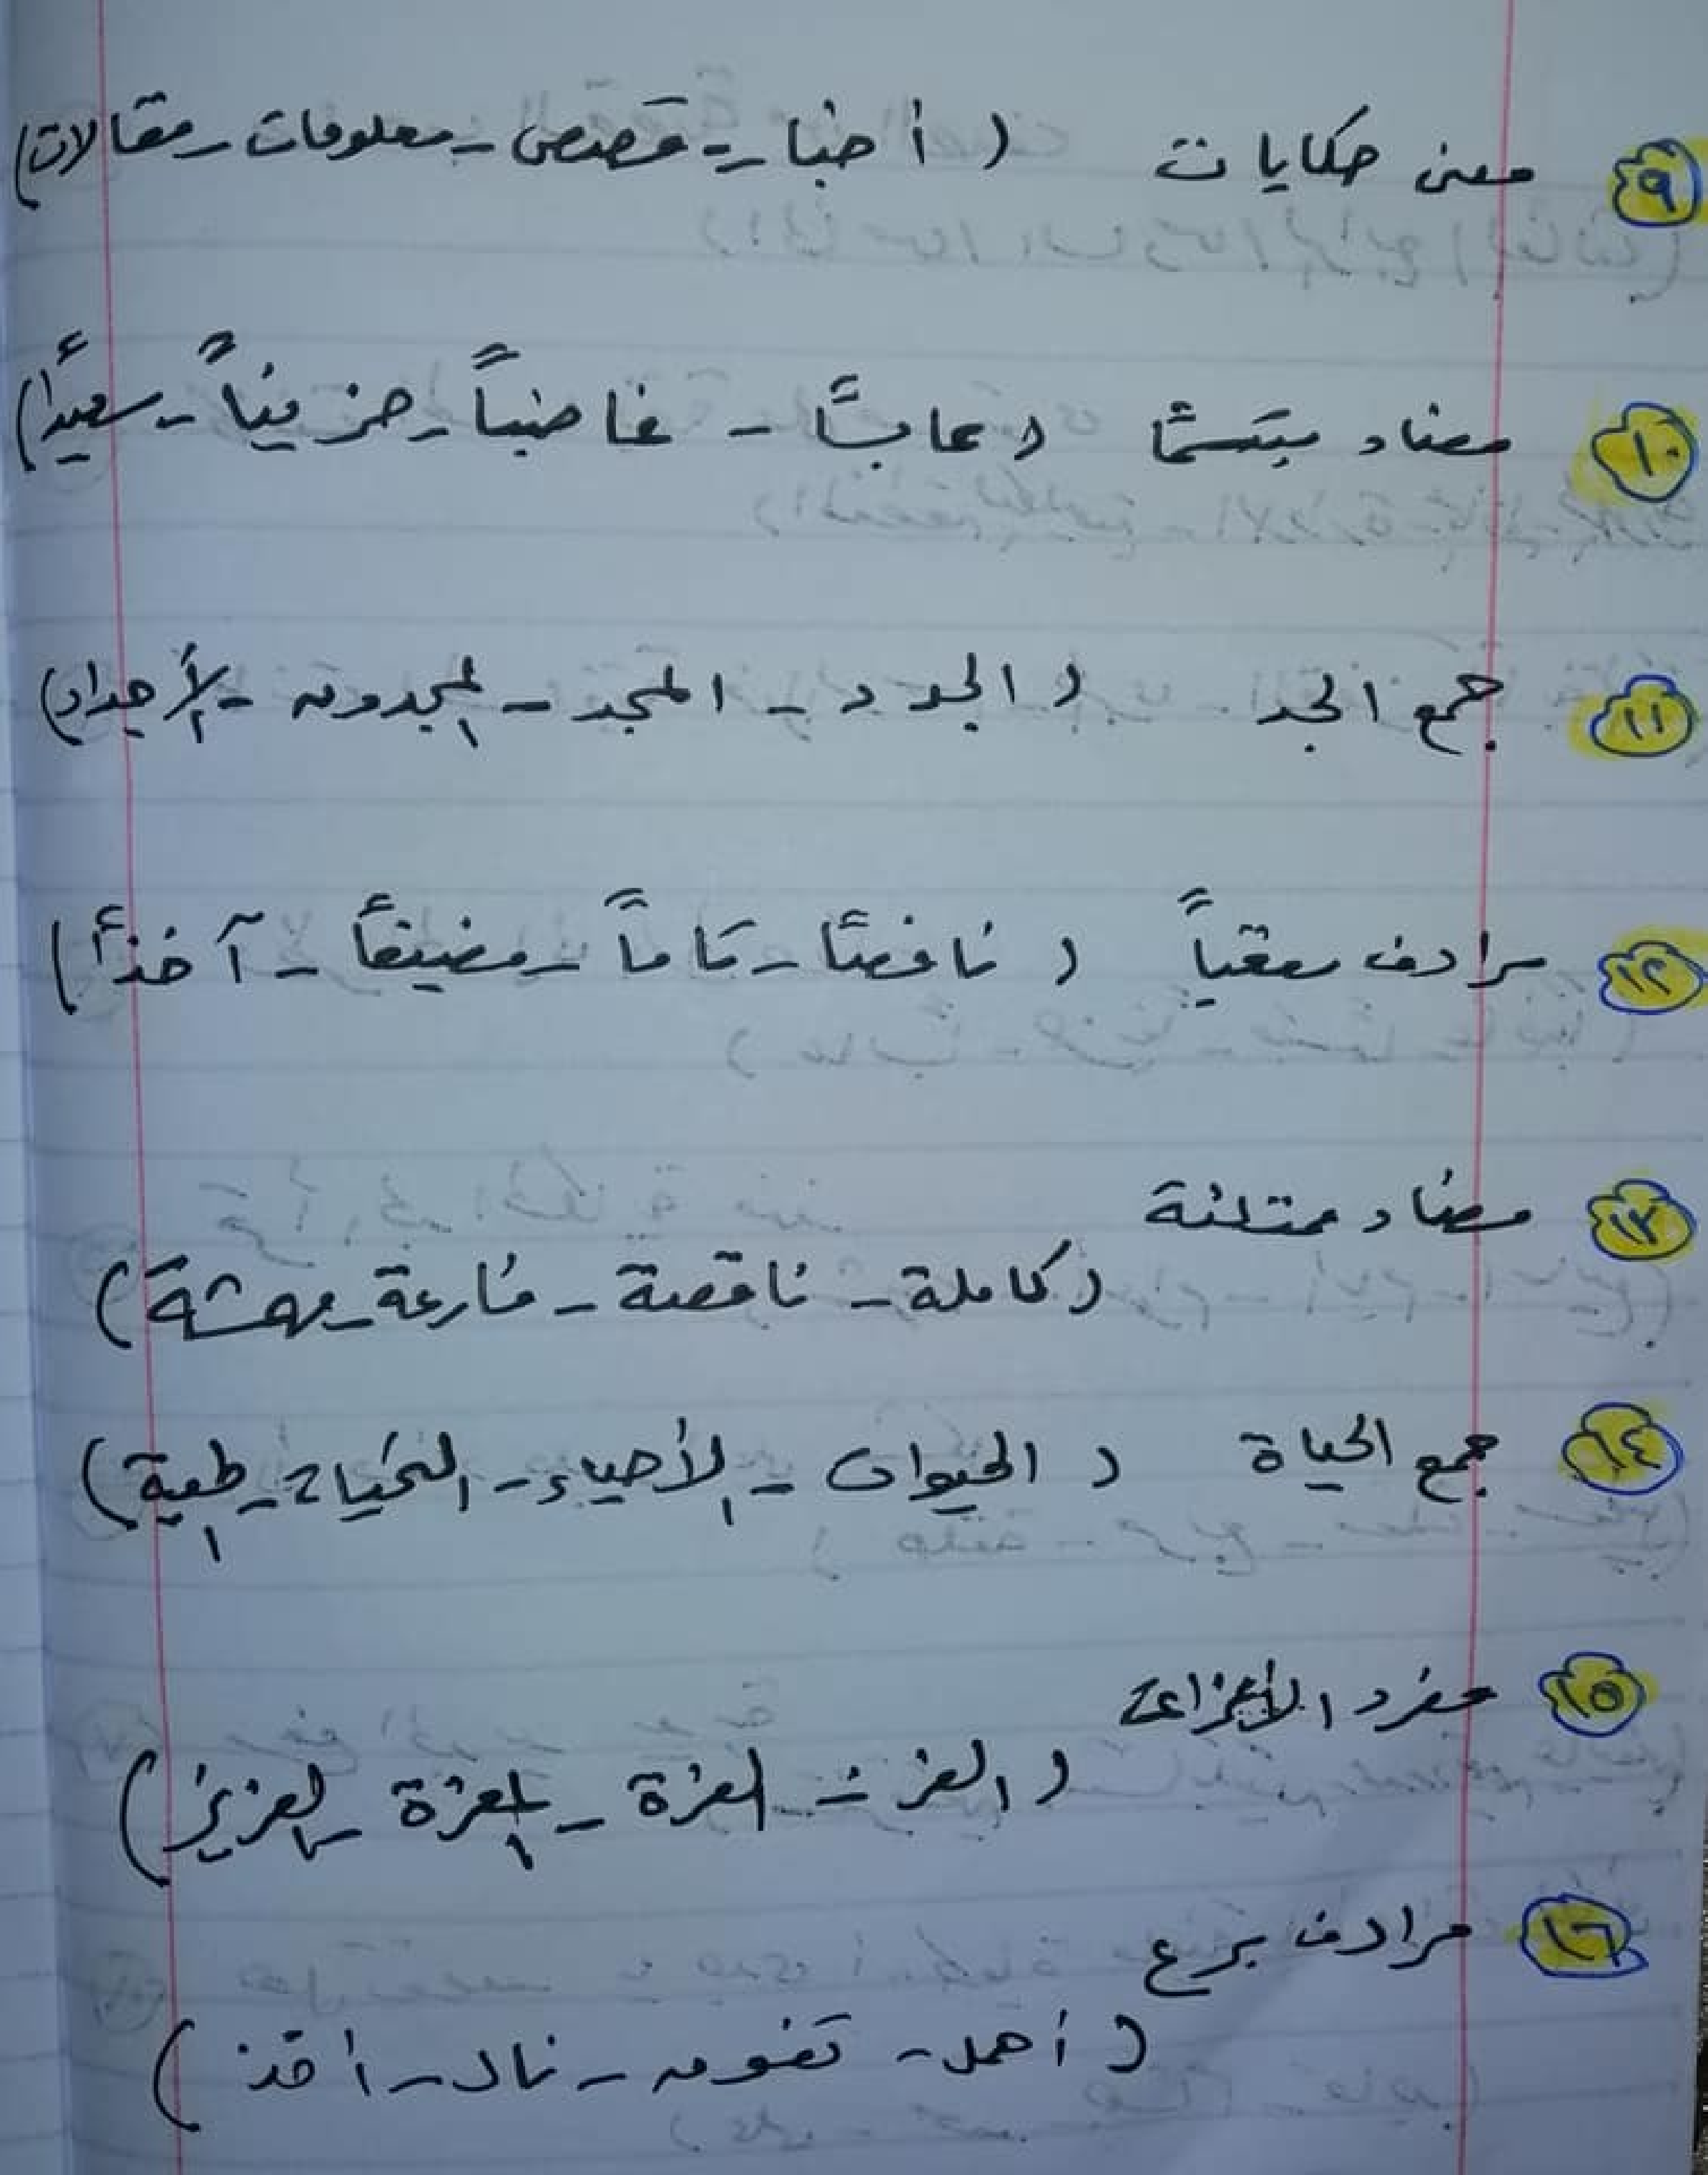 ٩ معنى حكايات ( أخبار - قصص - معلومات - مقالات)
١٠ مضاد مبتسمًا (عابسًا - غاضباً - حزيناً - سعيدًا)
١١ جمع الجد ( الجدد - المجد - المجدون - الأجداد)
١٢ مرادف سقياً ( ناقصًا - تاماً - مضيفًا - آخذًا)
١٣ مضاد ممتلئة
(كاملة - ناقصة - فارغة - مهشة)
١٤ جمع الحياة ( الحيوان - الأحياء - التحيات - الحية)
١٥ مفرد
( العز - العزة - العزيز)
١٦ مرادف برع
( أهمل - تفوق - نال - أخذ )